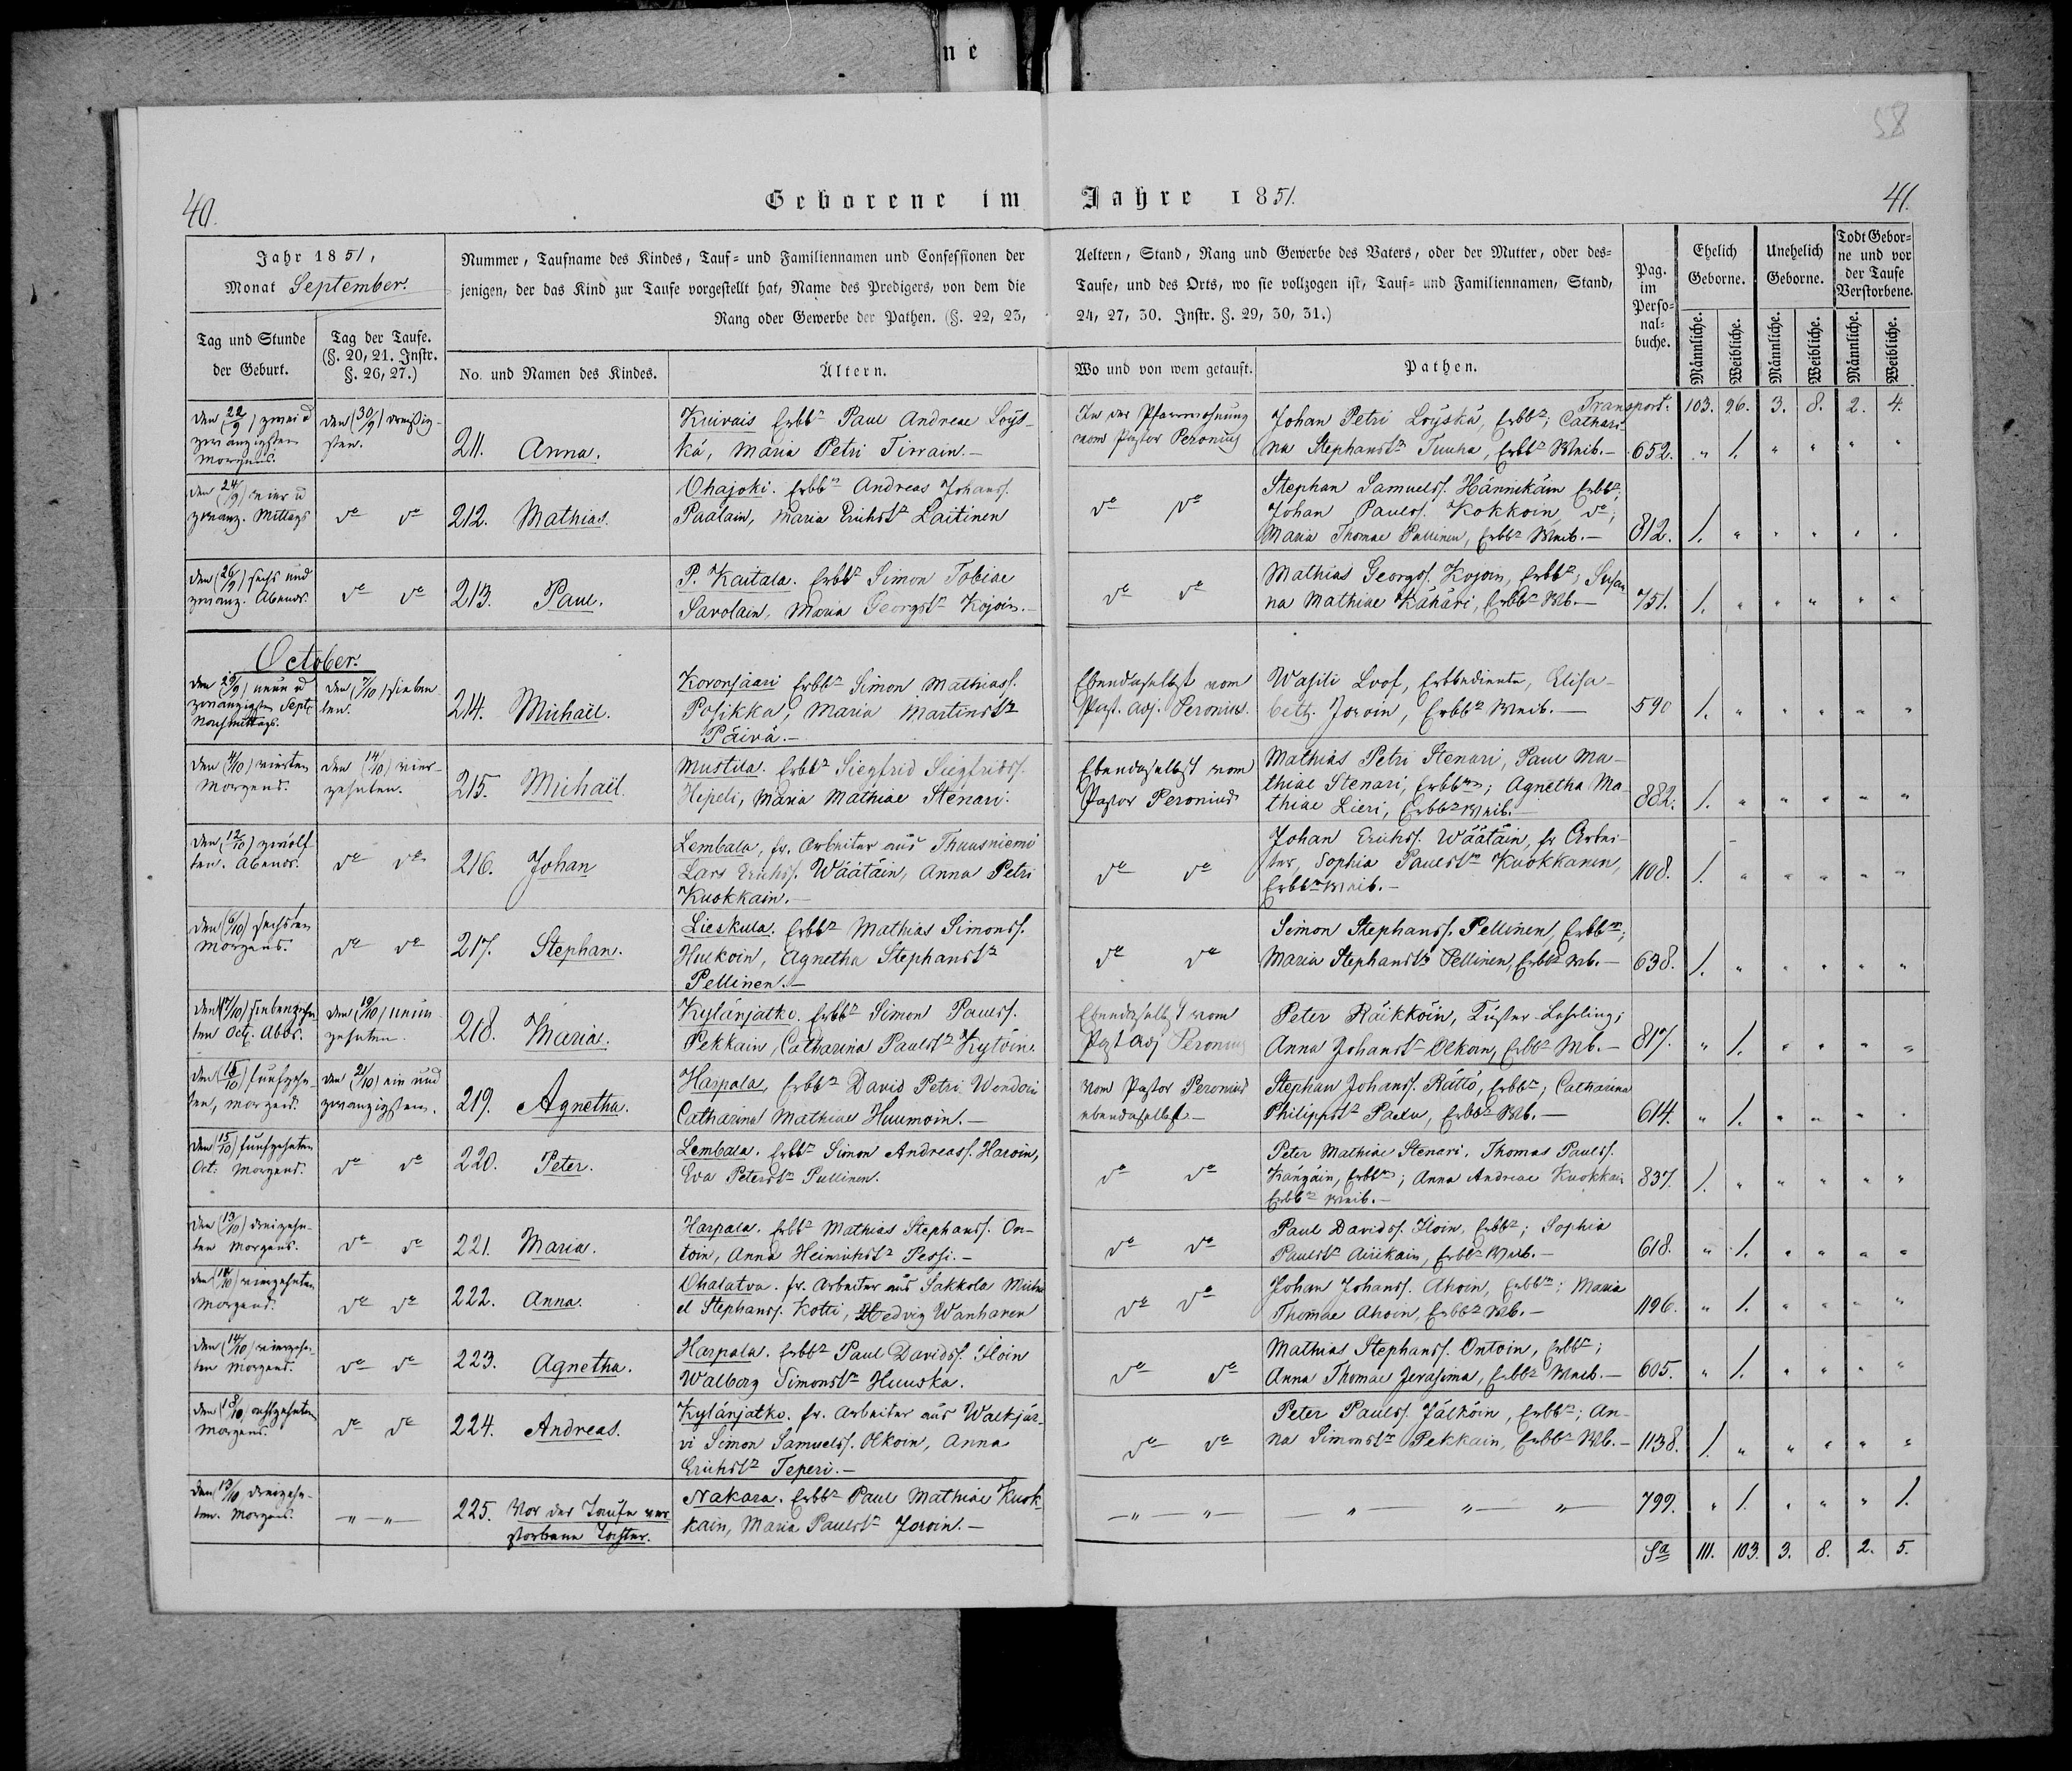 ne
58
40.
Geborene im Jahre 1851.
41.
Jahr 1851,
Monat September.
Tag und Stunde
der Geburt.
Tag der Taufe.
(§. 20, 21. Instr.
§. 26, 27.)
Nummer, Taufname des Kindes, Tauf- und Familiennamen und Confessionen der
jenigen, der das Kind zur Taufe vorgestellt hat, Name des Predigers, von dem die
Rang oder Gewerbe der Pathen. (§. 22, 23,
No. und Namen des Kindes.
Ältern.
Aeltern, Stand, Rang und Gewerbe des Vaters, oder der Mutter, oder des-
Taufe, und des Orts, wo sie vollzogen ist, Tauf- und Familiennamen, Stand,
24, 27, 30. Instr. §. 29, 30, 31.)
Wo und von wem getauft.
Pathen.
Pag.
im
Perso-
nal-
buche.
Ehelich
Geborne.
Unehelich
Geborne.
Todt Gebor-
ne und vor
der Taufe
Verstorbene.
Männliche.
Weibliche.
Männliche.
Weibliche.
Männliche.
Weibliche.
Transport. 103. 96. 3. 8. 2. 4.
den (22/9) zwei u
zwanzigsten
Morgens.
den (30/9) dreißig-
sten.
211. Anna.
Kuivais Erbbr Paul Andreae Löys-
kä, Maria Petri Tirrain.-
In der Pfarrwohnung
vom Pastor Peronius
Johan Petri Löyskä, Erbbr; Cathari-
na Stephanstr Tuuha, Erbbr Weib.-
652. " 1. " " " "
den (24/9) vier u
zwanz. Mittags
do do
212. Mathias.
Ohajoki. Erbbr Andreas Johanss.
Paalain, Maria Erichstr Laitinen
do do
Stephan Samuelss. Hännikäin Erbbr,
Johan Paulss. Kokkoin, do;
Maria Thomae Pullinen, Erbbr Weib.-
812. 1. " " " " "
den (26/9) sechs und
zwanz. Abends.
do do
213. Paul.
P. Kaitala. Erbbr Simon Tobiae
Savolain, Maria Georgstr Kojoin.-
do do
Mathias Georgss. Kojoin, Erbbr; Susan
na Mathiae Kähäri, Erbbr Wb.-
751. 1. " " " " "
October.
den (29/9) neun u
zwanzigsten Septr
Nachmittags.
den (7/10) sieben
ten.
214. Michaël.
Koronsaari Erbbr Simon Mathiass.
Posikka, Maria Martinstr
Päivä.-
Ebendaselbst vom
Past. Adj. Peronius.
Wasili Loof, Erbbediente, Elisa-
beth Joroin, Erbbr Weib.-
590 1. " " " " "
den (4/10) vierten
Morgens.
den (14/10) vier-
zehnten.
215. Michaël
Mustila. Erbbr Siegfrid Siegfridss.
Hepeli, Maria Mathiae Stenari.
Ebendaselbst vom
Pastor Peronius
Mathias Petri Stenari, Paul Ma-
thiae Stenari, Erbbrn; Agnetha Ma-
thiae Lieri, Erbbr Weib.-
882. 1. " " " " "
den (12/10) zwölf
ten. Abends.
do do
216. Johan
Lembala, fr. Arbeiter aus Thuusniemi
Lars Erichss. Wäätäin, Anna Petri
Kuokkain.-
do do
Johan Erichss. Wäätäin, fr Arbei-
ter, Sophia Paulstr Kuokkanen,
Erbbr Weib.-
1108. 1. " " " " "
den (6/10) sechsten
Morgens.
do do
217. Stephan.
Lieskula. Erbbr Mathias Simonss.
Hulkoin, Agnetha Stephanstr
Pellinen.-
do do
Simon Stephanss. Pellinen, Erbbr;
Maria Stephanstr Pellinen, Erbbr Wb.-
638. 1. " " " " "
den (17/10) siebenzehn
ten Oct. Abds.
den (19/10) neun
zehnten.
218. Maria.
Kylänjatko. Erbbr Simon Paulss.
Pekkain, Catharina Paulstr Kytöin.
Ebendaselbst vom
Past Adj Peronius
Peter Räikköin, Küster-Lehrling;
Anna Johanstr Olkoin, Erbbr Wb.-
817. " 1. " " " "
den (15/10) funfzehn-
ten, Morgens.
den (21/10) ein und
zwanzigsten.
219. Agnetha.
Harpala, Erbbr David Petri Wondoi
Catharina Mathiae Huumoin.-
vom Pastor Peronius
ebendaselbst-
Stephan Johanss. Rättö, Erbbr; Catharina
Philippstr Paxu, Erbbr Wb.-
614. " 1. " " " "
den (15/10) funfzehnten
Oct. Morgens.
do do
220. Peter.
Lembala. Erbbr Simon Andreass. Haroin,
Eva Peterstr Pullinen.
do do
Peter Mathiae Stenari, Thomas Paulss.
Kängäin, Erbbrn; Anna Andreae Kuokkain
Erbbr Weib.-
837. 1. " " " " "
den (13/10) dreizehn-
ten Morgens.
do do
221. Maria.
Harpala. Erbbr Mathias Stephanss. On-
toin, Anna Heinrichstr Pessi.-
do do
Paul Davidss. Iloin, Erbbr; Sophia
Paulstr Aiikain, Erbbr Weib.-
618. " 1. " " " "
den (14/10) vierzehnten
Morgens.
do do
222. Anna.
Ohalatva. fr. Arbeiter aus Sakkola Micha
el Stephanss. Kotti, Hedvig Wanhanen
do do
Johan Johanss. Ahoin, Erbbr; Maria
Thomae Ahoin, Erbbr Wb.-
1196. " 1. " " " "
den (14/10) vierzehn-
ten Morgens.
do do
223. Agnetha.
Harpala. Erbbr Paul Davidss. Iloin
Walborg Simonstr Huuska.
do do
Mathias Stephanss. Ontoin, Erbbr;
Anna Thomae Jerasima, Erbbr Weib.-
605. " 1. " " " "
den (18/10) achtzehnten
Morgens.
do do
224. Andreas.
Kylänjatko. fr. Arbeiter aus Walkjär-
vi Simon Samuelss. Olkoin, Anna
Erichstr Teperi.-
do do
Peter Paulss. Jälköin, Erbbr; An-
na Simonstr Pekkain, Erbbr Wb.-
1138. 1. " " " " "
den 13/10 dreizehn-
ten. Morgens.
-"-"-
225. Vor der Taufe ver
storbene Tochter.
Nakara. Erbbr Paul Mathiae Kuok
kain, Maria Paulstr Joroin.-
-"-"- -"-"-"-
799. " 1. " " " 1.
Sa 111. 103. 3. 8. 2. 5.